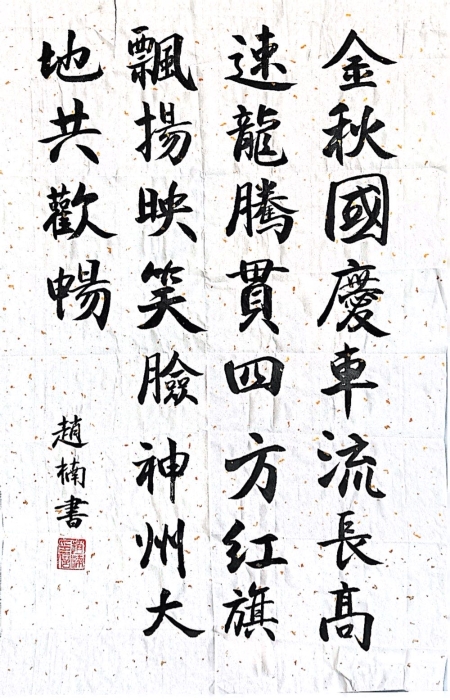 金秋國慶車流長髙
速龍騰貫四方红旗
飄揚映笑臉神州大
地共歡暢
趙楠書